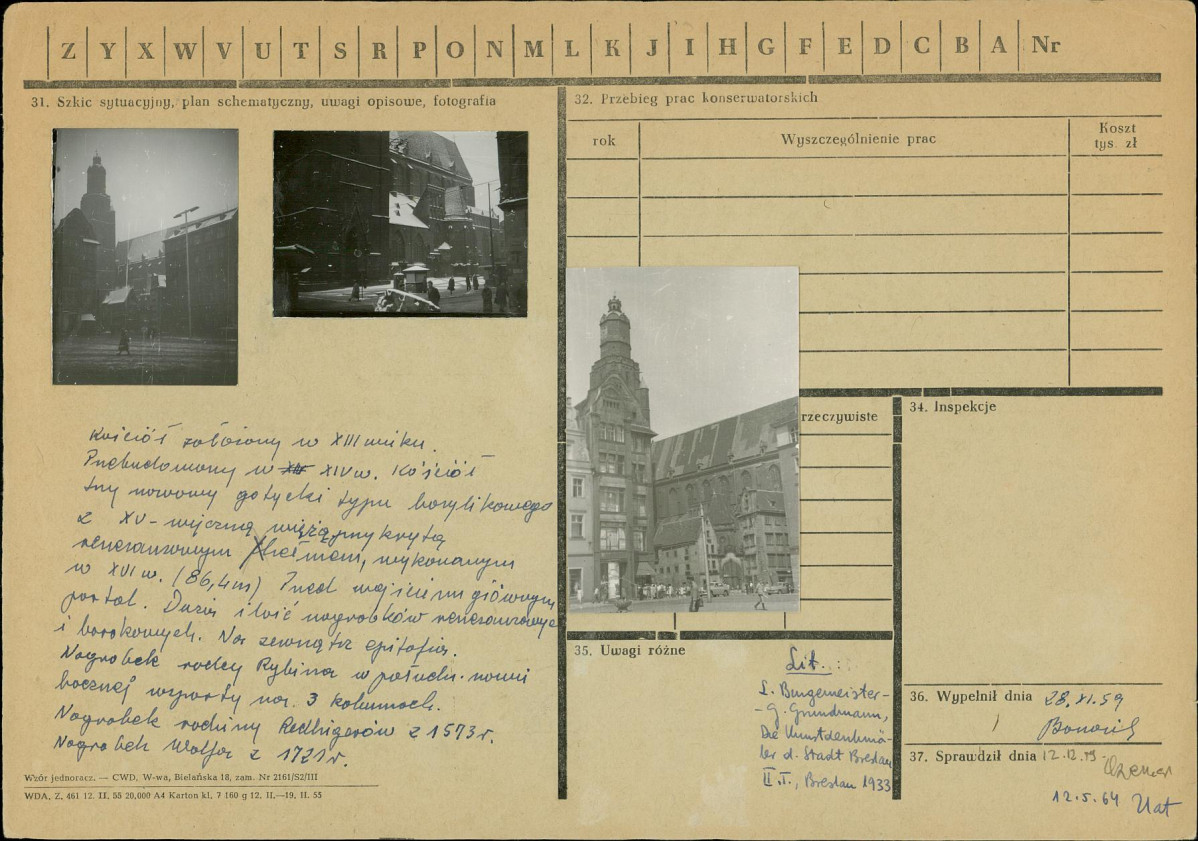 Z Y X W V U T S R P O N M L K J I H G F E D C B A Nr
31. Szkic sytuacyjny, plan schematyczny, uwagi opisowe, fotografia
Kościół założony w XIII wieku.
Przebudowany w XIV w. Kościół
trzy nawowy gotycki typu bazylikowego
z XV-wieczną wieżą przykrytą
renesansowym hełmem, wykonanym
w XVI w. (86,4m) Przed wejściem głównym
portal. Duża ilość nagrobków renesansowych
i barokowych. Na zewnątrz epitafia.
Nagrobek radcy Rybina w połudn. nawie
bocznej wsparty na 3 kolumnach.
Nagrobek rodziny Redhigerów z 1573 r.
Nagrobek Wolfa z 1721 r.
Wzór jednoracz. — CWD, W-wa, Bielańska 18, zam. Nr 2161/S2/III
WDA. Z. 461 12. II. 55 20,000 A4 Karton kl. 7 160 g 12. II.—19. II. 55
32. Przebieg prac konserwatorskich
rok
Wyszczególnienie prac
Koszt
tys. zł
rzeczywiste
34. Inspekcje
35. Uwagi różne
Lit.:
L. Burgemeister-
-G. Grundmann,
Die Kunstdenkmä-
ler d. Stadt Breslau
II. T., Breslau 1933
36. Wypełnił dnia 28.XI.59
37. Sprawdził dnia 12.12.59
12.5.64